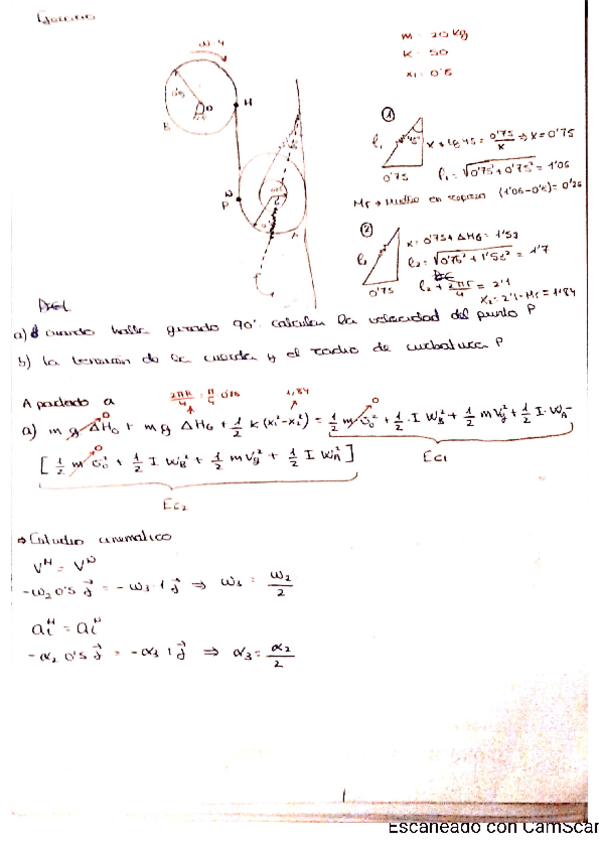 Ejercicio
m = 20 kg
K = 50
x₁ = 0'8
w = 4
0'5
O
H
B
N
P
A
①
45°
l₁
0'75
x + tg 45 = 0'75/x ⇒ x = 0'75
l₁ = √(0'75² + 0'75²) = 1'06
Mr → muelle en reposo (1'06-0'8) = 0'26
②
l₂
0'75
x = 0'75 + ΔHG = 1'53
l₂ = √(0'75² + 1'53²) = 1'7
l₂ + 2πr/4 = 2'1
x₂ = 2'1 - Mr = 1'84
a) cuando halla girado 90° calcular la velocidad del punto P
b) la tensión de la cuerda y el radio de curbatura P
Apartado a
2πR/4 = π/4 0'5
1,84
a) m g ΔH₀ + m g ΔHG + 1/2 k (x₁²-x₂²) = 1/2 m v₀² + 1/2 · I W_B² + 1/2 m V_g² + 1/2 I · W_A² -
Ec₁
[ 1/2 m v₀² + 1/2 I W_B² + 1/2 m V_g² + 1/2 I W_A² ]
Ec₂
⇒ Estudio cinematico
V^H = V^N
-w₂ 0'5 j = - w₃ · 1 j ⇒ w₃ = w₂/2
a_t^H = a_t^N
-α₂ 0'5 j = - α₃ 1 j ⇒ α₃ = α₂/2
Escaneado con CamScan